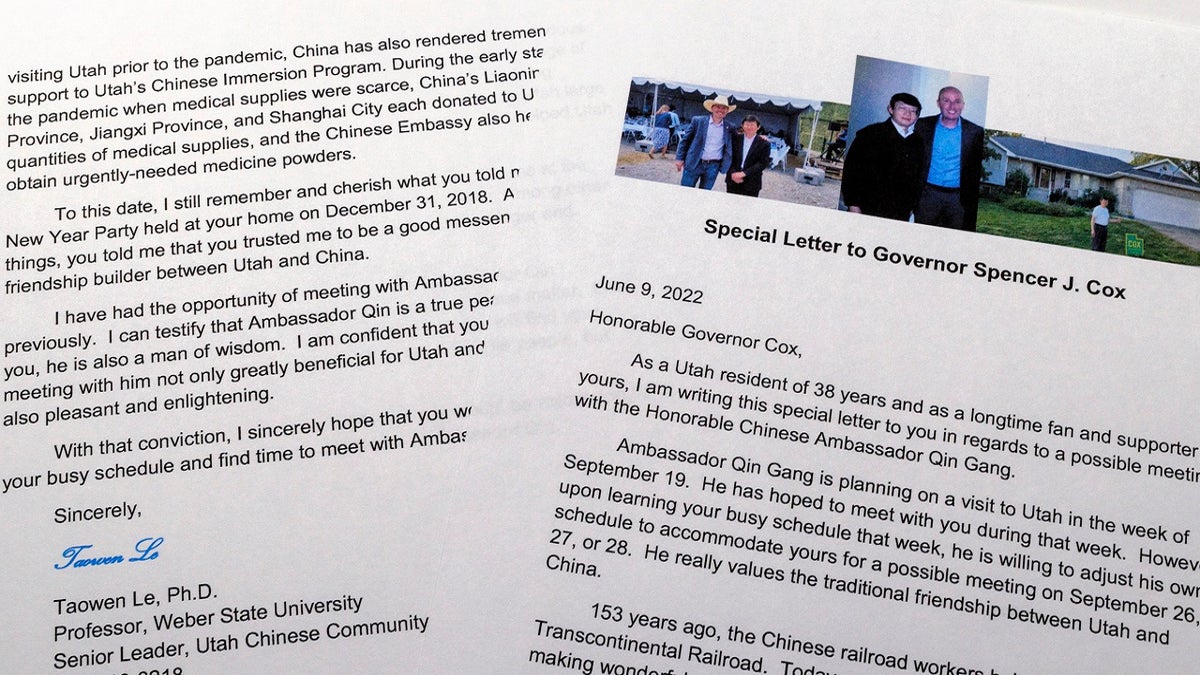 visiting Utah prior to the pandemic, China has also rendered tremen
support to Utah's Chinese Immersion Program. During the early sta
the pandemic when medical supplies were scarce, China's Liaonin
Province, Jiangxi Province, and Shanghai City each donated to U
quantities of medical supplies, and the Chinese Embassy also he
obtain urgently-needed medicine powders.
To this date, I still remember and cherish what you told n
New Year Party held at your home on December 31, 2018. A
things, you told me that you trusted me to be a good messen
friendship builder between Utah and China.
I have had the opportunity of meeting with Ambassac
previously. I can testify that Ambassador Qin is a true pea
you, he is also a man of wisdom. I am confident that you
meeting with him not only greatly beneficial for Utah and
also pleasant and enlightening.
With that conviction, I sincerely hope that you wo
your busy schedule and find time to meet with Ambas
Sincerely,
Taowen Le
Taowen Le, Ph.D.
Professor, Weber State University
Senior Leader, Utah Chinese Community
COX
Special Letter to Governor Spencer J. Cox
June 9, 2022
Honorable Governor Cox,
As a Utah resident of 38 years and as a longtime fan and supporter
yours, I am writing this special letter to you in regards to a possible meetin
with the Honorable Chinese Ambassador Qin Gang.
Ambassador Qin Gang is planning on a visit to Utah in the week of
September 19. He has hoped to meet with you during that week. Howeve
upon learning your busy schedule that week, he is willing to adjust his own
schedule to accommodate yours for a possible meeting on September 26,
27, or 28. He really values the traditional friendship between Utah and
China.
153 years ago, the Chinese railroad workers
Transcontinental Railroad. Today
making